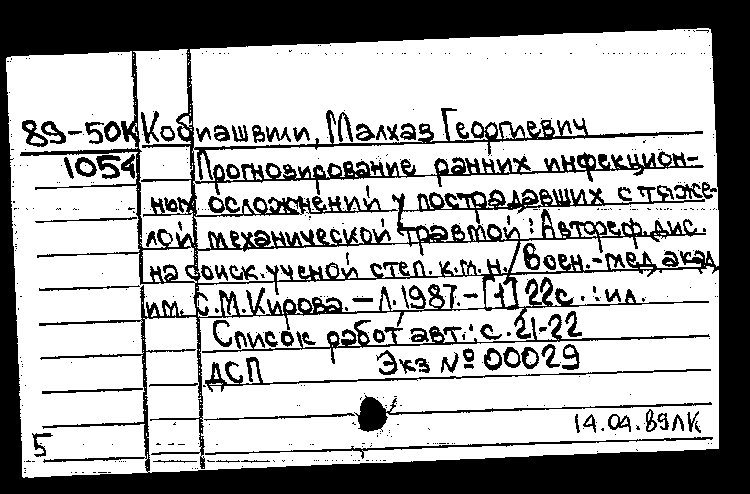 89-50К Кобиашвили, Малхаз Георгиевич
1054 Прогнозирование ранних инфекцион-
ных осложнений у пострадавших с тяже-
лой механической травмой : Автореф. дис.
на соиск. ученой степ. к.м.н. / Воен.-мед. акад
им. С.М.Кирова. – Л. 1987. – [1] 22с. : ил.
Список работ авт.: с. 21-22
ДСП Экз № 00029
14.04.89ЛК
5